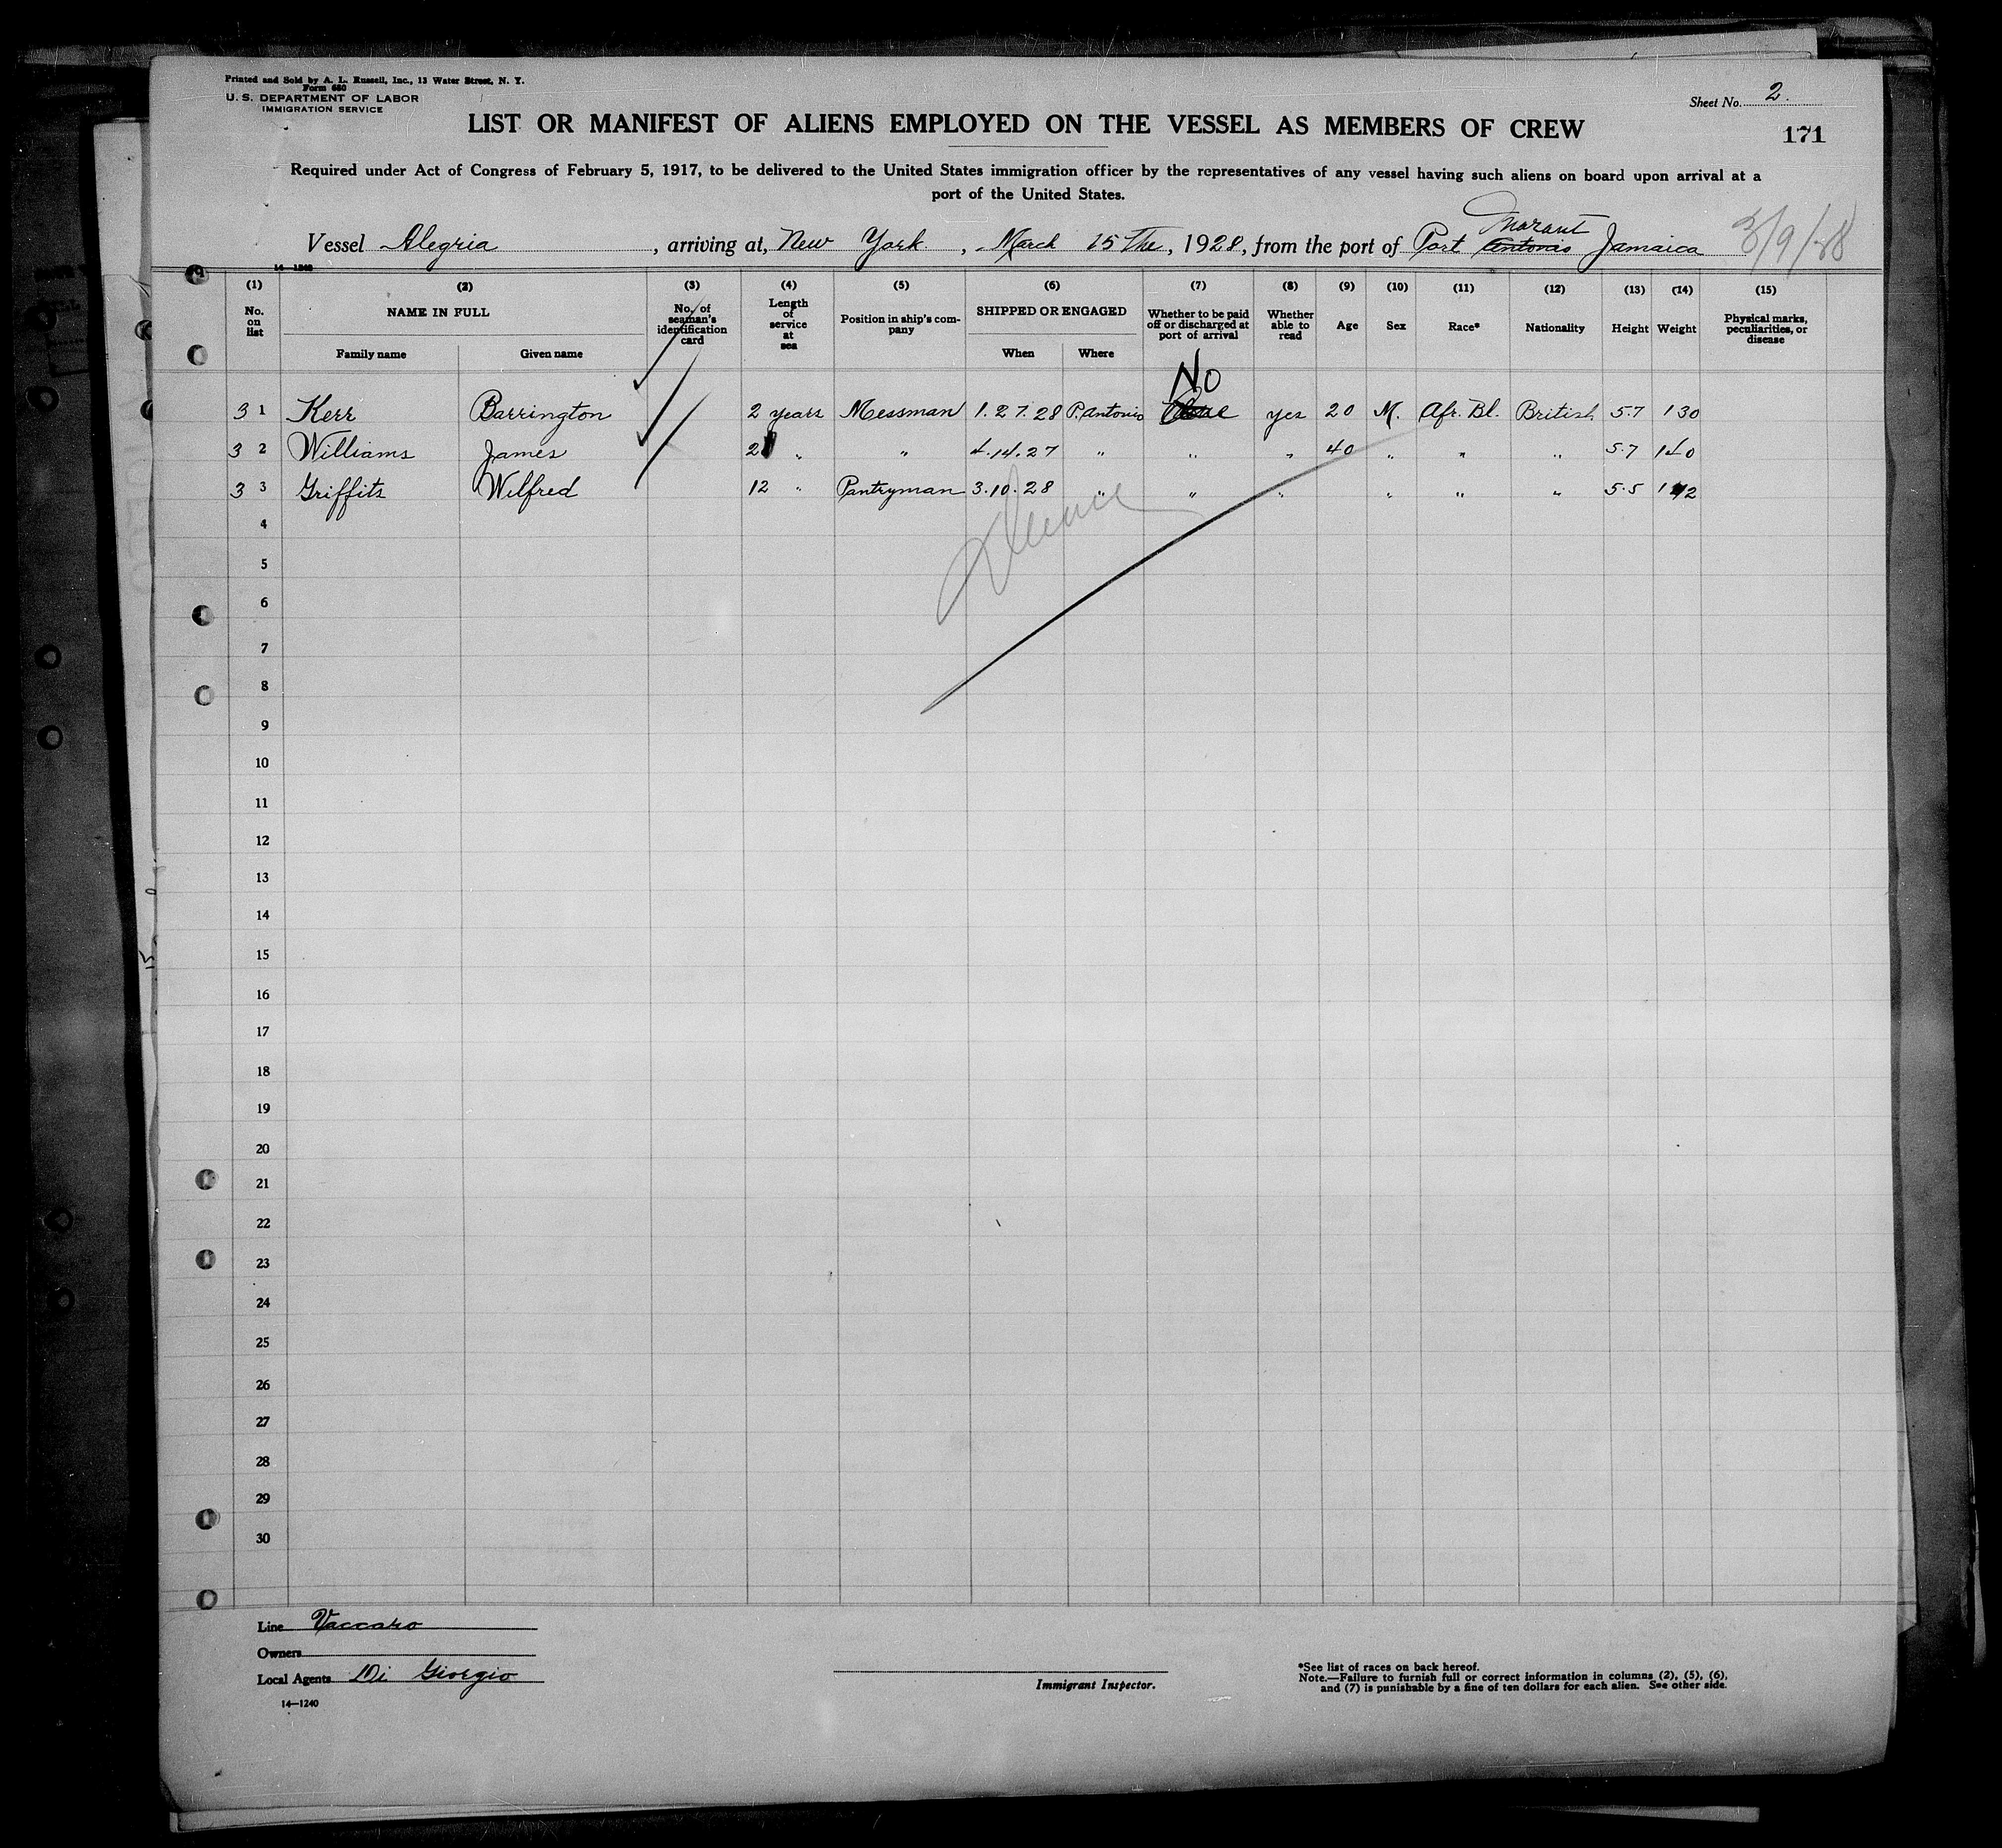 Printed and Sold by A. L. Russell, Inc., 13 Water Street, N. Y.
Form 680
U. S. DEPARTMENT OF LABOR
IMMIGRATION SERVICE
Sheet No. 2.
LIST OR MANIFEST OF ALIENS EMPLOYED ON THE VESSEL AS MEMBERS OF CREW
171
Required under Act of Congress of February 5, 1917, to be delivered to the United States immigration officer by the representatives of any vessel having such aliens on board upon arrival at a
port of the United States.
Morant
Vessel Alegria, arriving at, New York, March 15 The, 1928, from the port of Port Antonio Jamaica
14—1240
(1) (2) (3) (4) (5) (6) (7) (8) (9) (10) (11) (12) (13) (14) (15)
No. on list NAME IN FULL No. of seaman's identification card Length of service at sea Position in ship's company SHIPPED OR ENGAGED Whether to be paid off or discharged at port of arrival Whether able to read Age Sex Race* Nationality Height Weight Physical marks, peculiarities, or disease
Family name Given name When Where
No
3 1 Kerr Barrington 2 years Messman 1.27.28 P. Antonio yes 20 M. Afr. Bl. British 5.7 130
3 2 Williams James 2 " " 4.14.27 " " " 40 " " " 5.7 140
3 3 Griffits Wilfred 12 " Pantryman 3.10.28 " " " " " " 5.5
4
5
6
7
8
9
10
11
12
13
14
15
16
17
18
19
20
21
22
23
24
25
26
27
28
29
30
Line Vaccaro
Owners
Local Agents Di Giorgio
14—1240
Immigrant Inspector.
*See list of races on back hereof.
Note.—Failure to furnish full or correct information in columns (2), (5), (6),
and (7) is punishable by a fine of ten dollars for each alien. See other side.